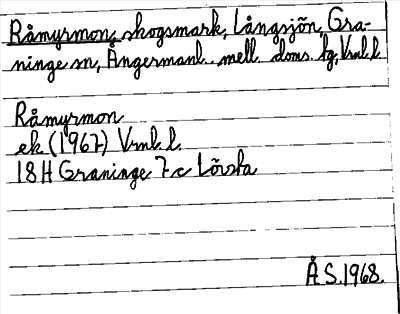 Råmyrmon, skogsmark, Långsjön, Gra-
ninge sn, Ångermanl. mell. doms. hg, Vrnl. l.
Råmyrmon
ek (1967) Vrnl. l.
18H Graninge 7c Lövsta
Å S. 1968.